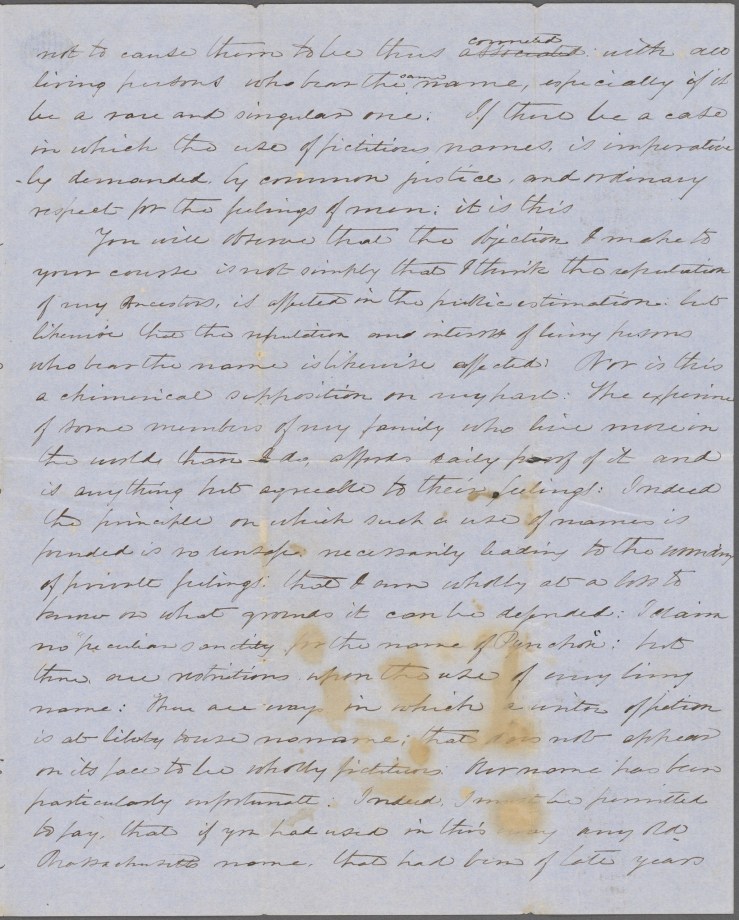 not to cause them to be thus associated connected with all
living persons who bear the same name, especially if it
be a rare and singular one: If there be a case
in which the use of fictitious names, is imperative
-ly demanded, by common justice, and ordinary
respect for the feelings of men; it is this
You will observe that the objection I make to
your course is not simply that I think the reputation
of my Ancestors, is affected in the public estimation: but
likewise that the reputation and interest of living persons
who bear the name is likewise affected: Nor is this
a chimerical supposition on my part: The experience
of some members of my family who live more in
the world, than I do, affords daily proof of it and
is anything but agreeable to their feelings: Indeed
the principle on which such a use of names is
founded is so unsafe, necessarily leading to the wounding
of private feelings that I am wholly at a loss to
know on what grounds it can be defended: I claim
no "peculiar sanctity for the name of Pyncheon": but
there are restrictions upon the use of every living
name: There are ways in which a writer of fiction
is at liberty to use no name; that does not appear
on its face to be wholly fictitious Our name has been
particularly unfortunate. Indeed, I must be permitted
to say, that if you had used in this way any old
Massachusetts name, that had been of late years